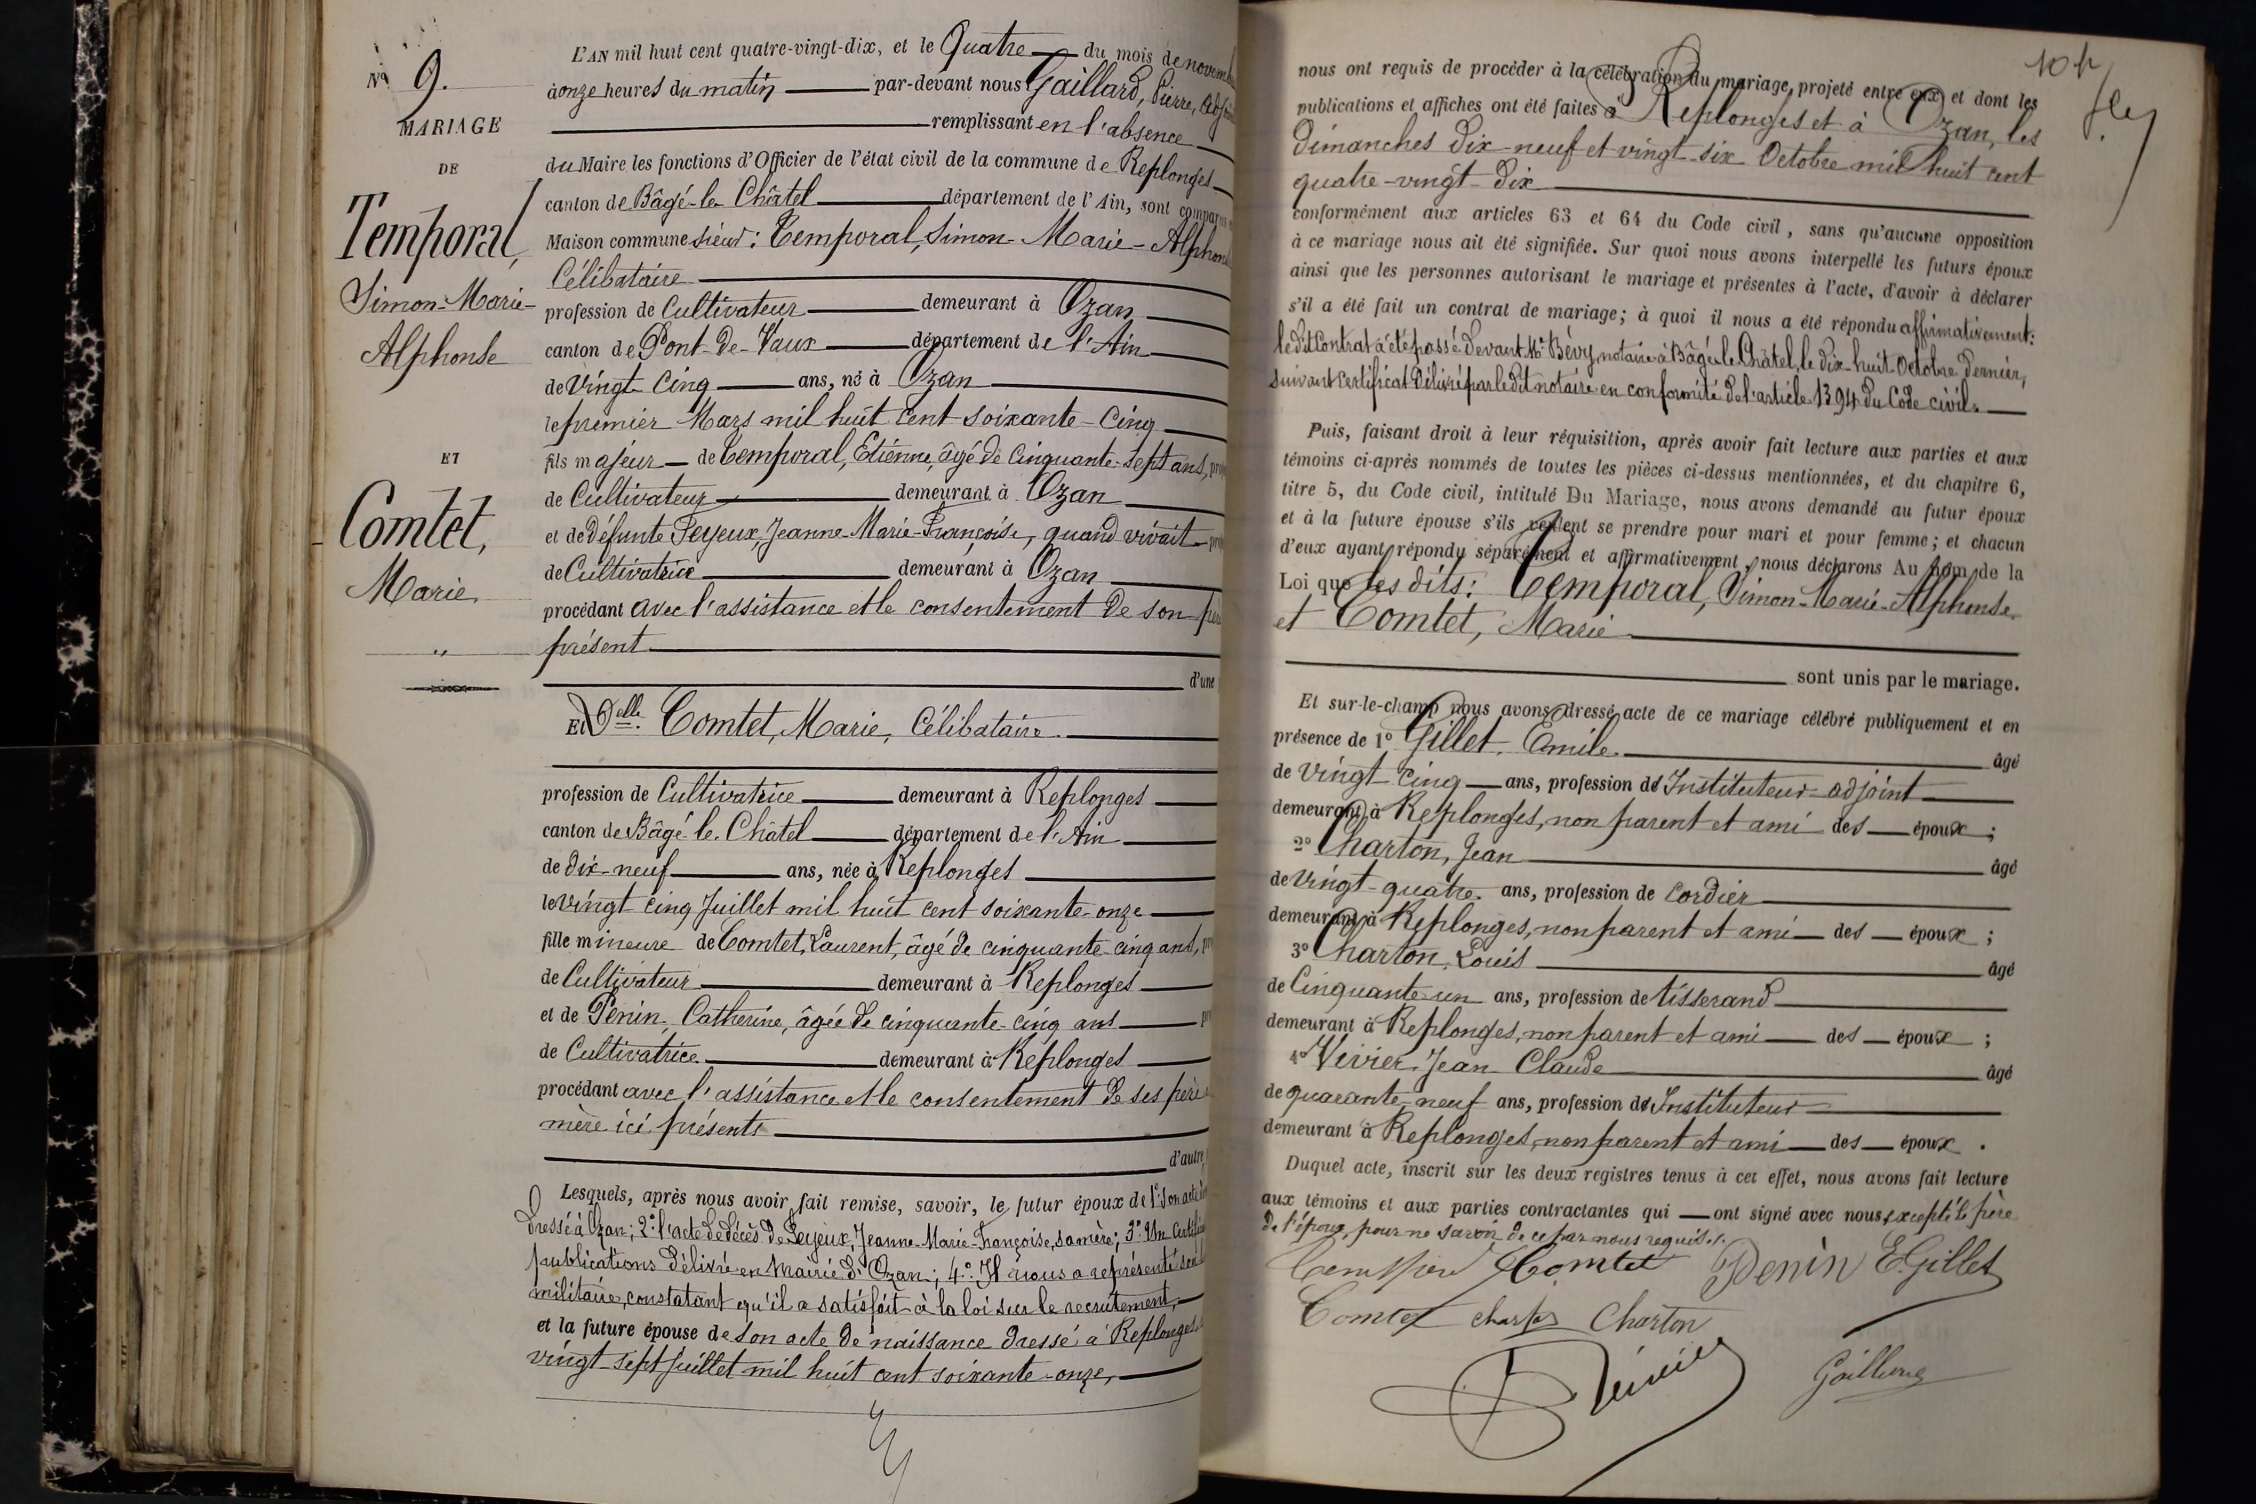 No 9.
MARIAGE
DE
Temporal,
Simon-Marie-
Alphonse
ET
Comtet,
Marie
"
L'AN mil huit cent quatre-vingt-dix, et le Quatre du mois de novem
à onze heures du matin par-devant nous Gaillard, Pierre, Adj
remplissant en l'absence
du Maire les fonctions d'Officier de l'état civil de la commune de Replonges
canton de Bâgé-le-Châtel département de l'Ain, sont compar
Maison commune sieur: Temporal, Simon-Marie-Alphon
Célibataire
profession de Cultivateur demeurant à Ozan
canton de Pont-de-Vaux département de l'Ain
de Vingt cinq ans, né à Ozan
le premier Mars mil huit cent soixante-cinq
fils majeur de Temporal, Etienne, âgé de cinquante-sept ans, pro
de Cultivateur demeurant à Ozan
et de défunte Peyeux, Jeanne-Marie-Françoise, quand vivait pro
de Cultivatrice demeurant à Ozan
procédant avec l'assistance et le consentement de son père
présent
d'une
Et Delle Comtet, Marie, Célibataire
profession de Cultivatrice demeurant à Replonges
canton de Bâgé-le-Châtel département de l'Ain
de dix-neuf ans, née à Replonges
le vingt cinq Juillet mil huit cent soixante-onze
fille mineure de Comtet, Laurent, âgé de cinquante-cinq ans, pr
de Cultivateur demeurant à Replonges
et de Penin, Catherine, âgée de cinquante-cinq ans pr
de Cultivatrice demeurant à Replonges
procédant avec l'assistance et le consentement de ses père
mère ici présents
d'autre
Lesquels, après nous avoir fait remise, savoir, le futur époux de 1° son acte
dressé à Ozan; 2° l'acte de décès de Peyeux, Jeanne-Marie-Françoise, sa mère; 3° Un Certifi
publications délivré en Mairie d'Ozan; 4° Il nous a représenté son
militaire, constatant qu'il a satisfait à la loi sur le recrutement,
et la future épouse de son acte de naissance dressé à Replonges
vingt-sept Juillet mil huit cent soixante-onze,
nous ont requis de procéder à la célébration du mariage projeté entre eux et dont les
publications et affiches ont été faites à Replonges et à Ozan, les
dimanches dix-neuf et vingt-six Octobre mil huit cent
quatre-vingt-dix
conformément aux articles 63 et 64 du Code civil, sans qu'aucune opposition
à ce mariage nous ait été signifiée. Sur quoi nous avons interpellé les futurs époux
ainsi que les personnes autorisant le mariage et présentes à l'acte, d'avoir à déclarer
s'il a été fait un contrat de mariage; à quoi il nous a été répondu affirmativement:
le dit Contrat a été passé devant Me Bévy, notaire à Bâgé-le-Châtel, le dix-huit Octobre dernier,
suivant certificat délivré par le dit notaire en conformité de l'article 1394 du Code civil.
Puis, faisant droit à leur réquisition, après avoir fait lecture aux parties et aux
témoins ci-après nommés de toutes les pièces ci-dessus mentionnées, et du chapitre 6,
titre 5, du Code civil, intitulé Du Mariage, nous avons demandé au futur époux
et à la future épouse s'ils veulent se prendre pour mari et pour femme; et chacun
d'eux ayant répondu séparément et affirmativement, nous déclarons Au nom de la
Loi que les dits: Temporal, Simon-Marie-Alphonse
et Comtet, Marie
sont unis par le mariage.
Et sur-le-champ nous avons dressé acte de ce mariage célébré publiquement et en
présence de 1° Gillet, Emile. âgé
de vingt-cinq ans, profession d'Instituteur-adjoint
demeurant à Replonges, non parent et ami des époux;
2° Charton, Jean âgé
de vingt-quatre ans, profession de cordier
demeurant à Replonges, non parent et ami des époux;
3° Charton, Louis âgé
de Cinquante-un ans, profession de tisserand
demeurant à Replonges, non parent et ami des époux;
4° Vivier, Jean Claude âgé
de quarante-neuf ans, profession d'Instituteur
demeurant à Replonges, non parent et ami des époux.
Duquel acte, inscrit sur les deux registres tenus à cet effet, nous avons fait lecture
aux témoins et aux parties contractantes qui ont signé avec nous, excepté le père
de l'époux, pour ne savoir, de ce par nous requis.
Comtet Penin E. Gillet
Comtet Charton